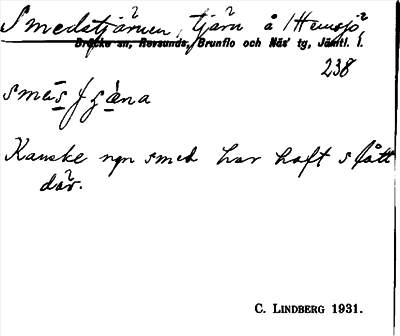 Smedstjärnen, tjärn å Hemsjö,
Bräcke sn, Revsunds, Brunflo och Näs' tg, Jämtl. l.
238
Kanske ngn smed har haft slått
där.
C. LINDBERG 1931.